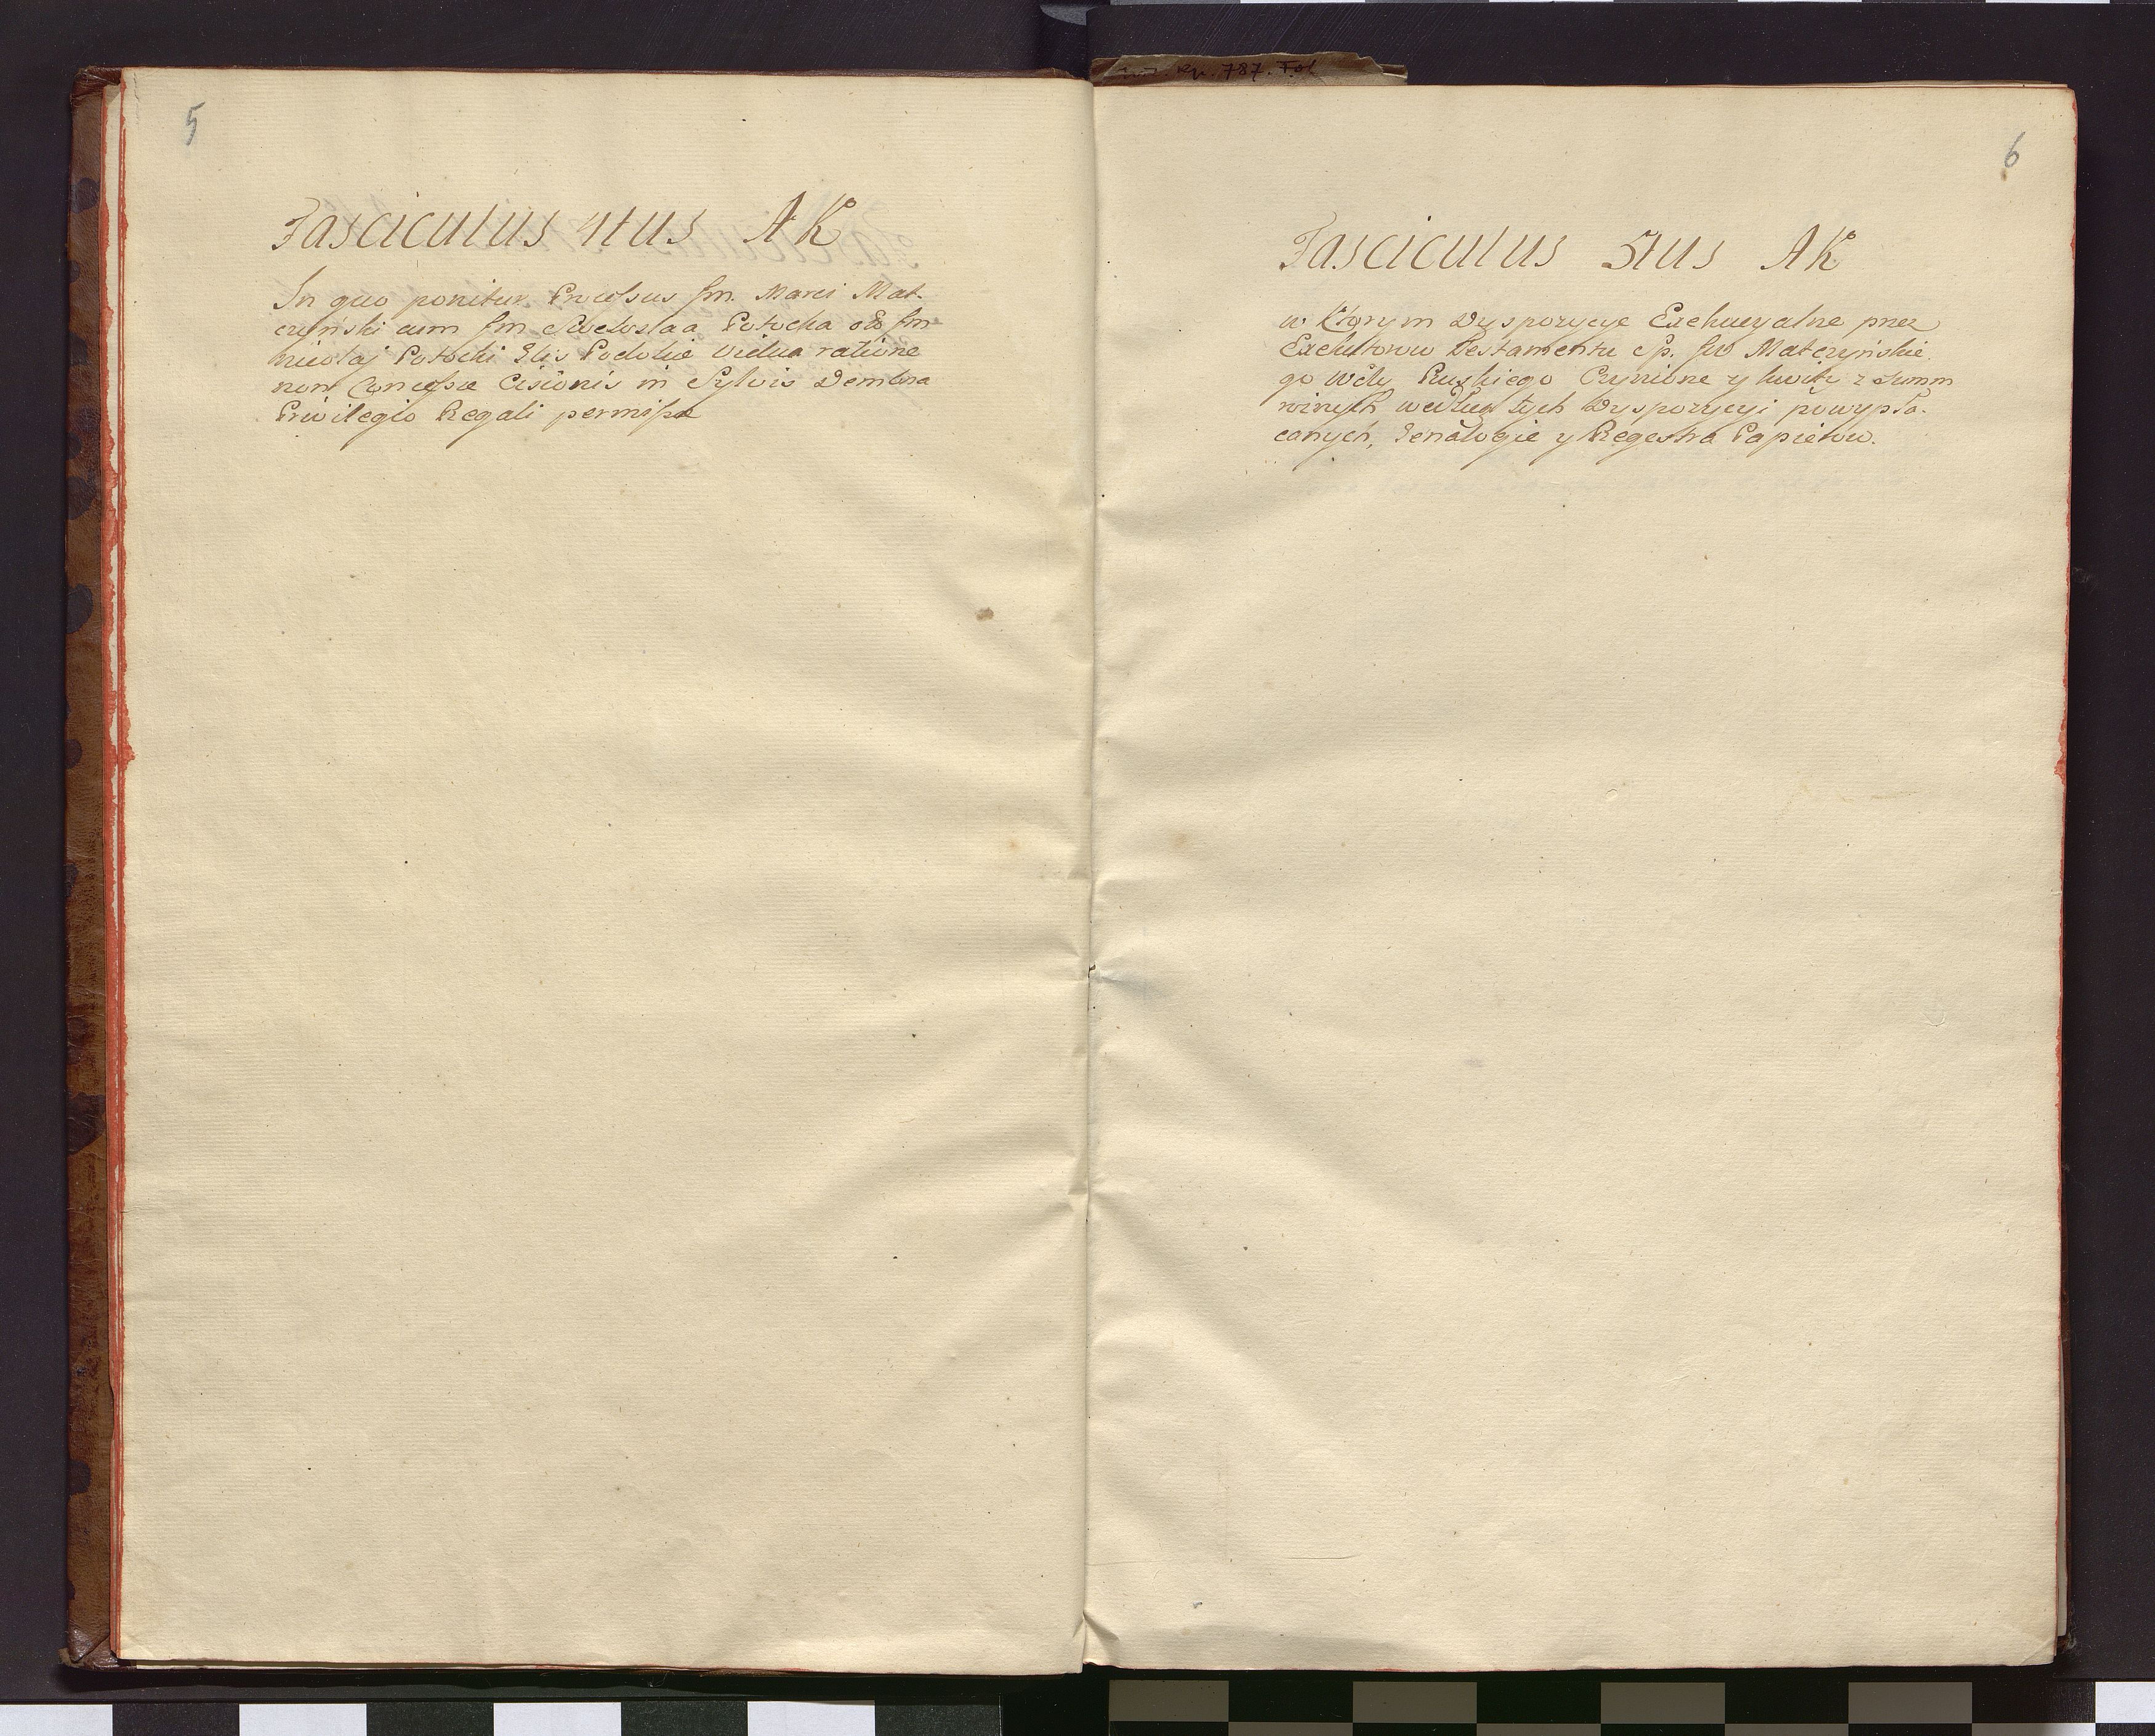 5
Fasciculus 4tus AK
In quo ponitur Processus Jm. Marci Mat-
czyński cum Jm Potocka olo Jm
Nicolai Potocki Glis Podoliæ Vidua ratione
non Concessæ Cisionis in Sylvis Dembna
Privilegio Regali permissæ
Rp. 787. Fol
6
Fasciculus 5tus AK
w którym Dyspozycye Exekucyalne przez
Exekutorow Testamentu Sp. Jw Matczyńskie
go Wdy Ruskiego Czynione y kwity z Summ
winnych według tych Dyspozycyi powypła-
canych, Genalogie y Regestra Papierow.